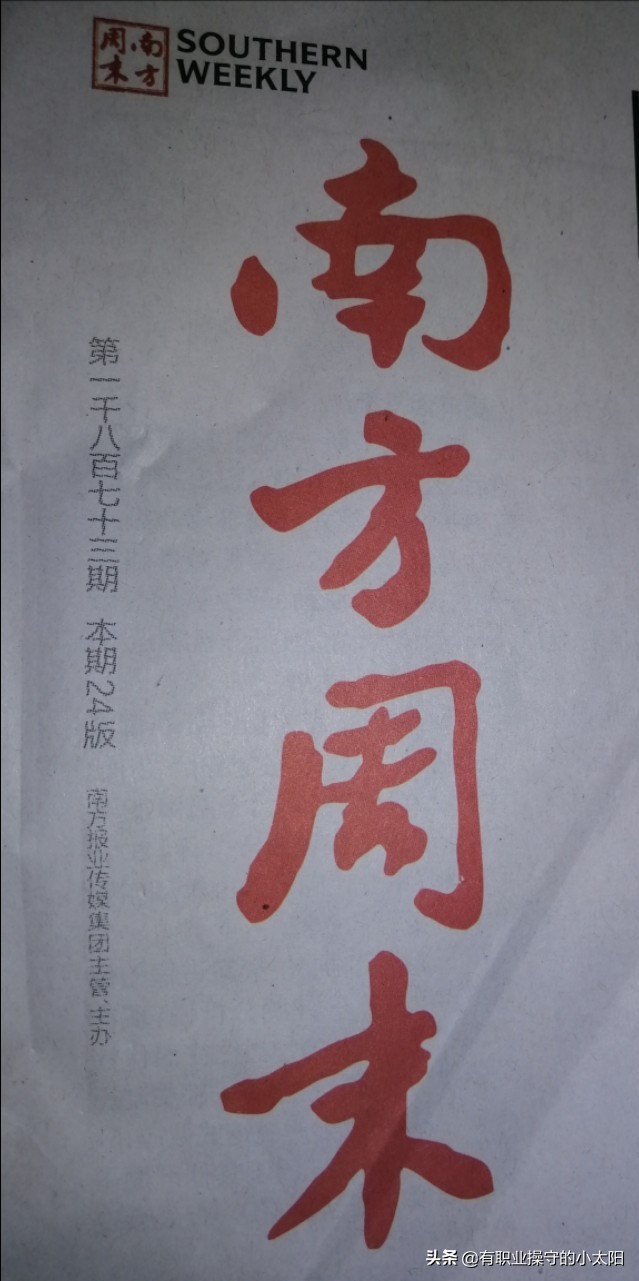 南方周末
SOUTHERN
WEEKLY
南方周末
第一千八百七十三期 本期24版
南方报业传媒集团主管、主办
头条 @有职业操守的小太阳